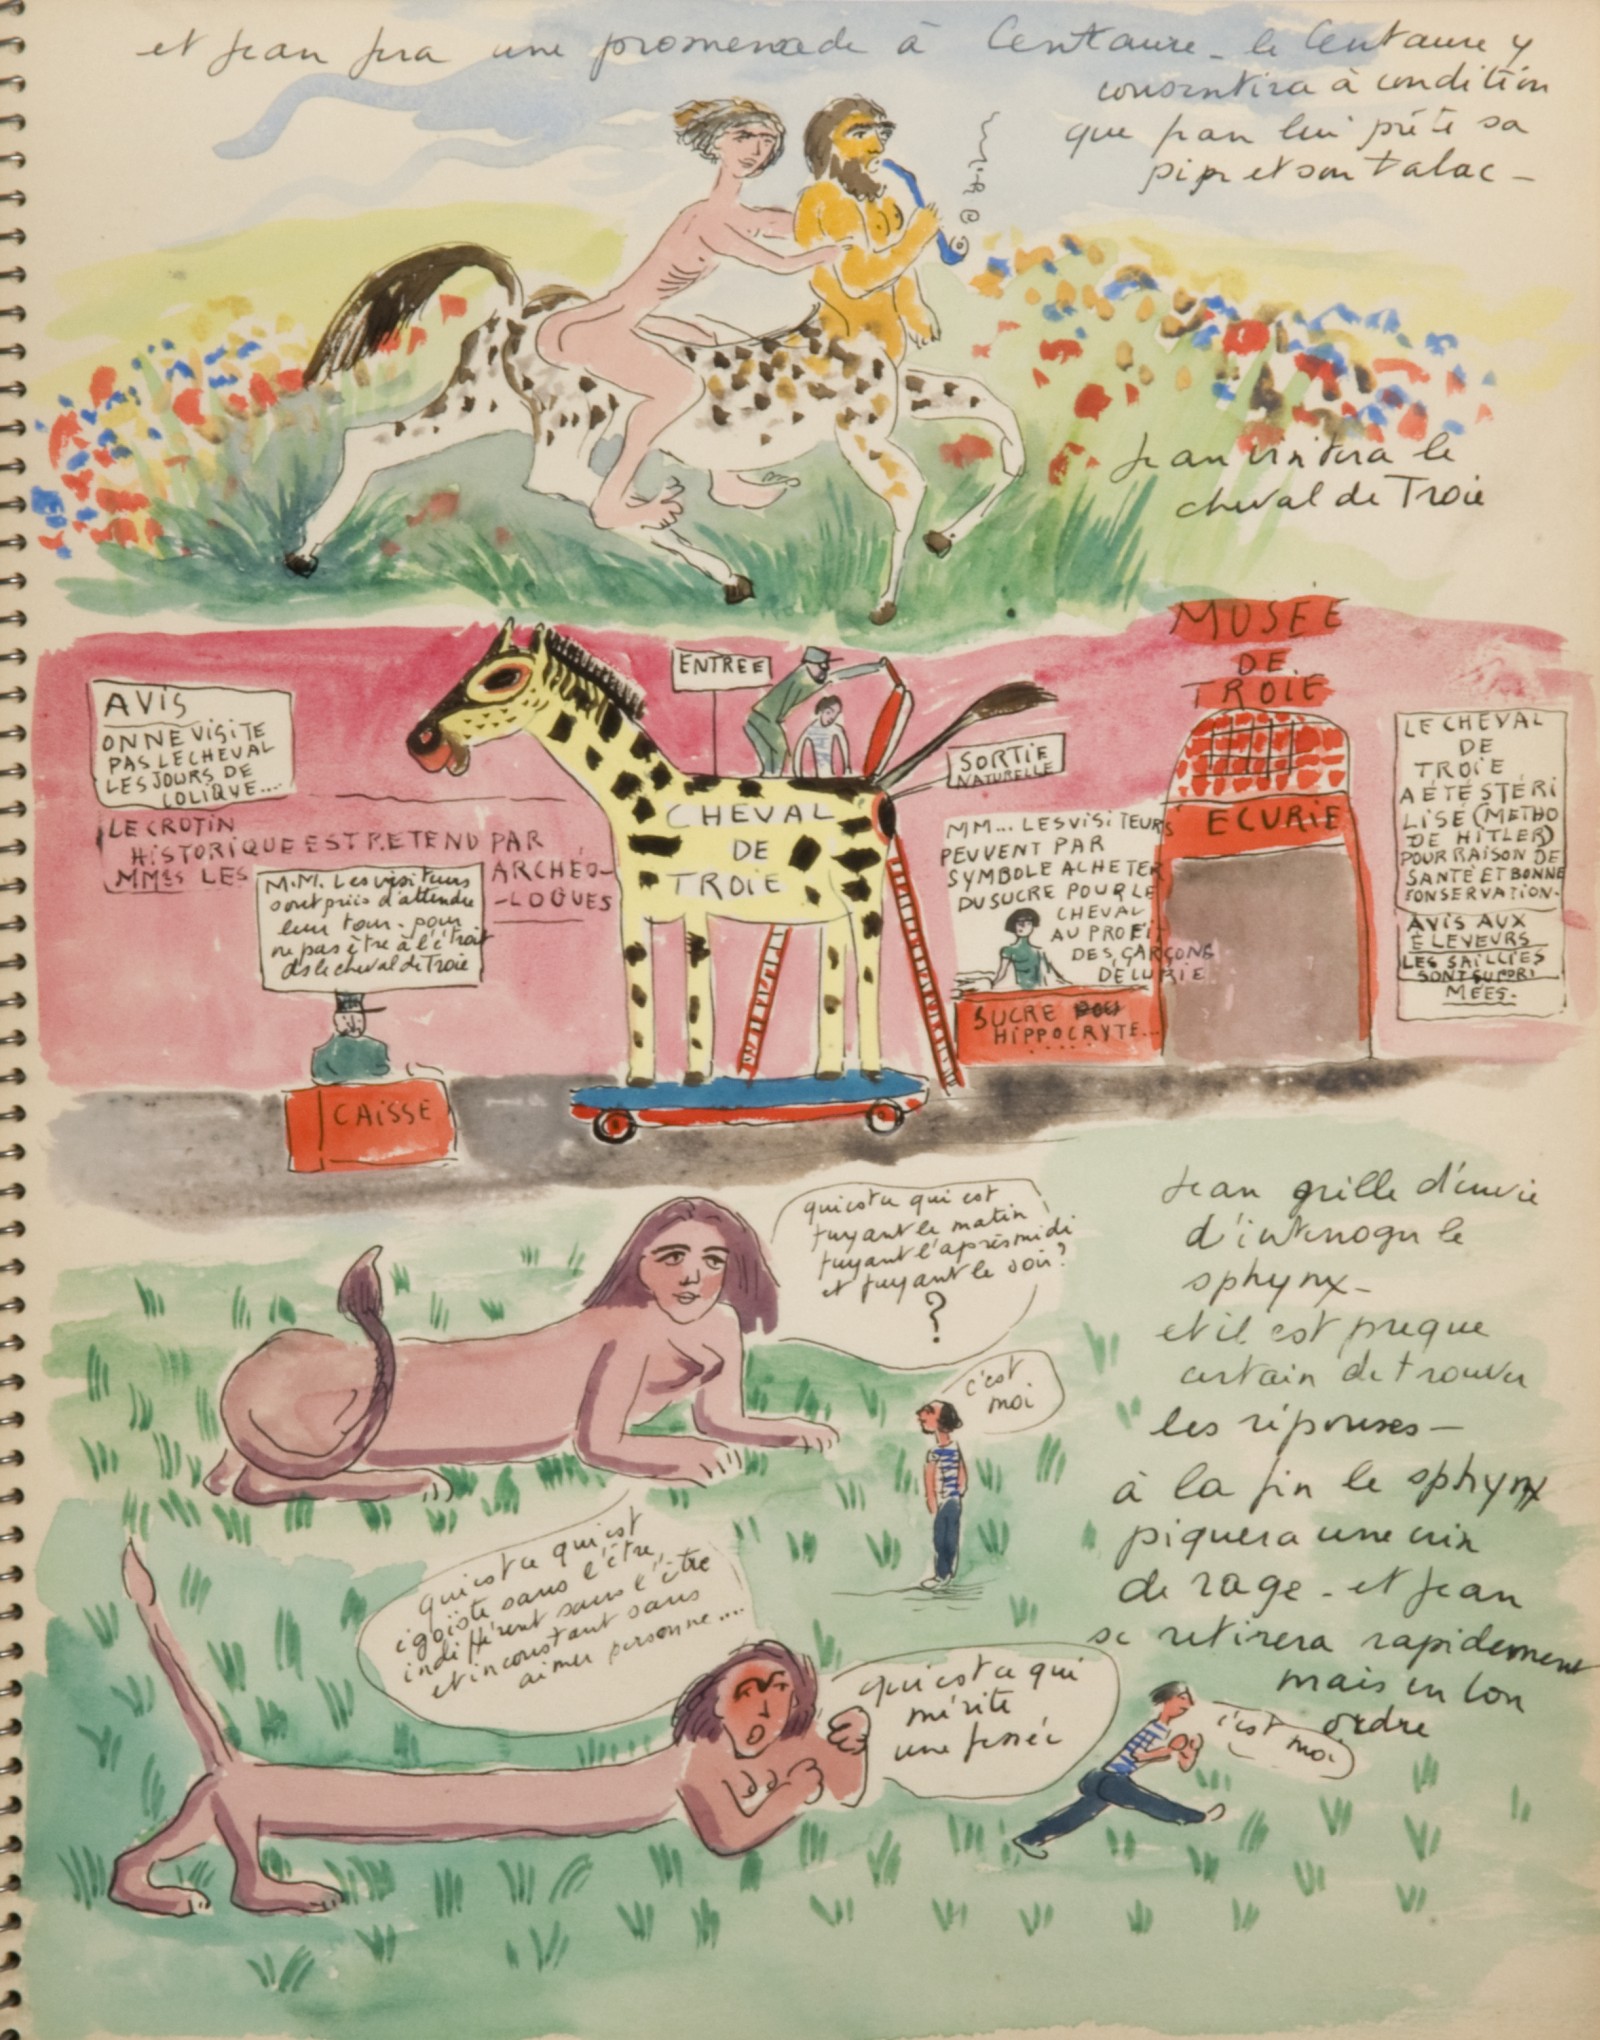 et Jean fera une promenade à Centaure - le Centaure y
consentira à condition
que Jean lui prête sa
pipe et son tabac -
Jean visitera le
cheval de Troie
MUSEE
DE
TROIE
ECURIE
ENTREE
SORTIE
NATURELLE
AVIS
ON NE VISITE
PAS LE CHEVAL
LES JOURS DE
COLIQVE....
LE CROTIN
HISTORIQUE EST RETEND PAR
MMes LES ARCHÉO-
-LOGUES
M.M. Les visiteurs
sont priés d'attendre
leur tour. pour
ne pas être à l'étroit
ds le cheval de Troie
CAISSE
CHEVAL
DE
TROIE
MM... LES VISITEURS
PEUVENT PAR
SYMBOLE ACHETER
DU SUCRE POUR LE
CHEVAL
AU PROFI-
DES GARÇONS
DÉCURIE
SUCRE
HIPPOCRYTE...
LE CHEVAL
DE
TROIE
A ÉTÉ STÉRI
LISÉ (METHO
DE HITLER)
POUR RAISON DE
SANTÉ ET BONNE
CONSERVATION-
AVIS AUX
ÉLEVEURS
LES SAILLIES
SONT SUPPRI
MÉES-
Jean grille d'envie
d'interroger le
sphynx-
et il est presque
certain de trouver
les réponses-
à la fin le sphynx
piquera une crise
de rage - et Jean
se retirera rapidement
mais en bon
ordre
qui est ce qui est
fuyant le matin
fuyant l'après midi
et fuyant le soir?
?
c'est
moi
qui est ce qui est
égoïste sans l'être,
indifférent sans l'être
et inconstant sans
aimer personne....
qui est ce qui
mérite
une fessée
c'est
moi